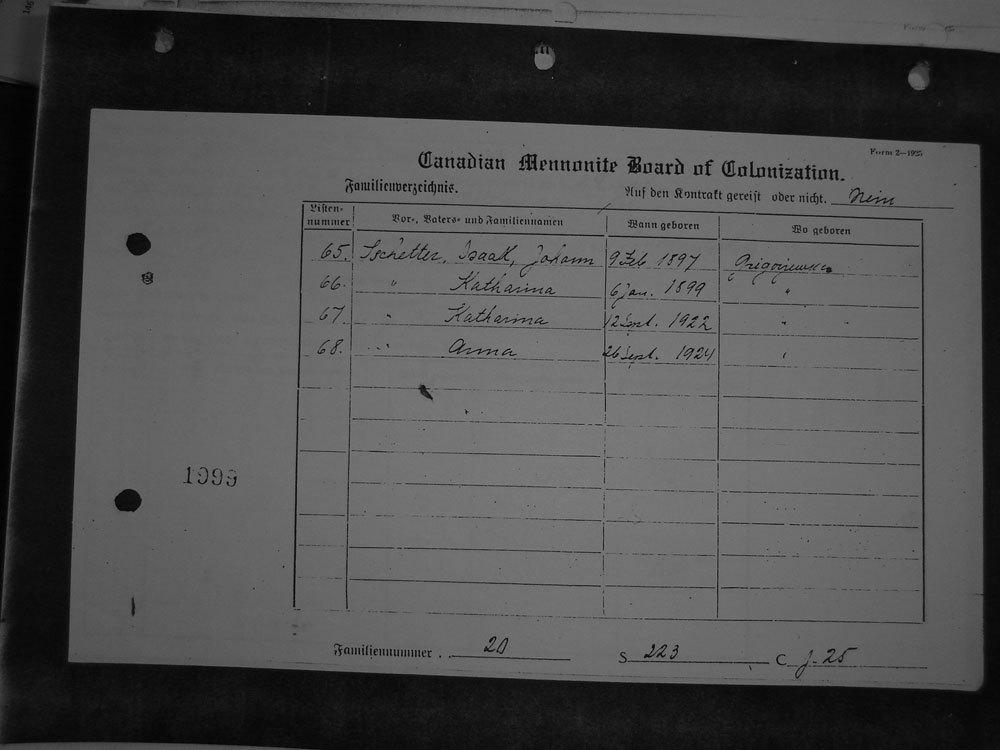 Form 2—1925
Canadian Mennonite Board of Colonization.
Familienverzeichnis. Auf den Kontrakt gereist oder nicht. Nein
Listen-nummer Vor-, Vaters- und Familiennamen Wann geboren Wo geboren
65. Tschetter, Isaak, Johann 9 Feb 1897
66. " Katharina 6 Jan. 1899 "
67 " Katharina 12 Sept. 1922 "
68. " Anna 26 Sept. 1924 "
1999
Familiennummer . 20 S 223 C J-25